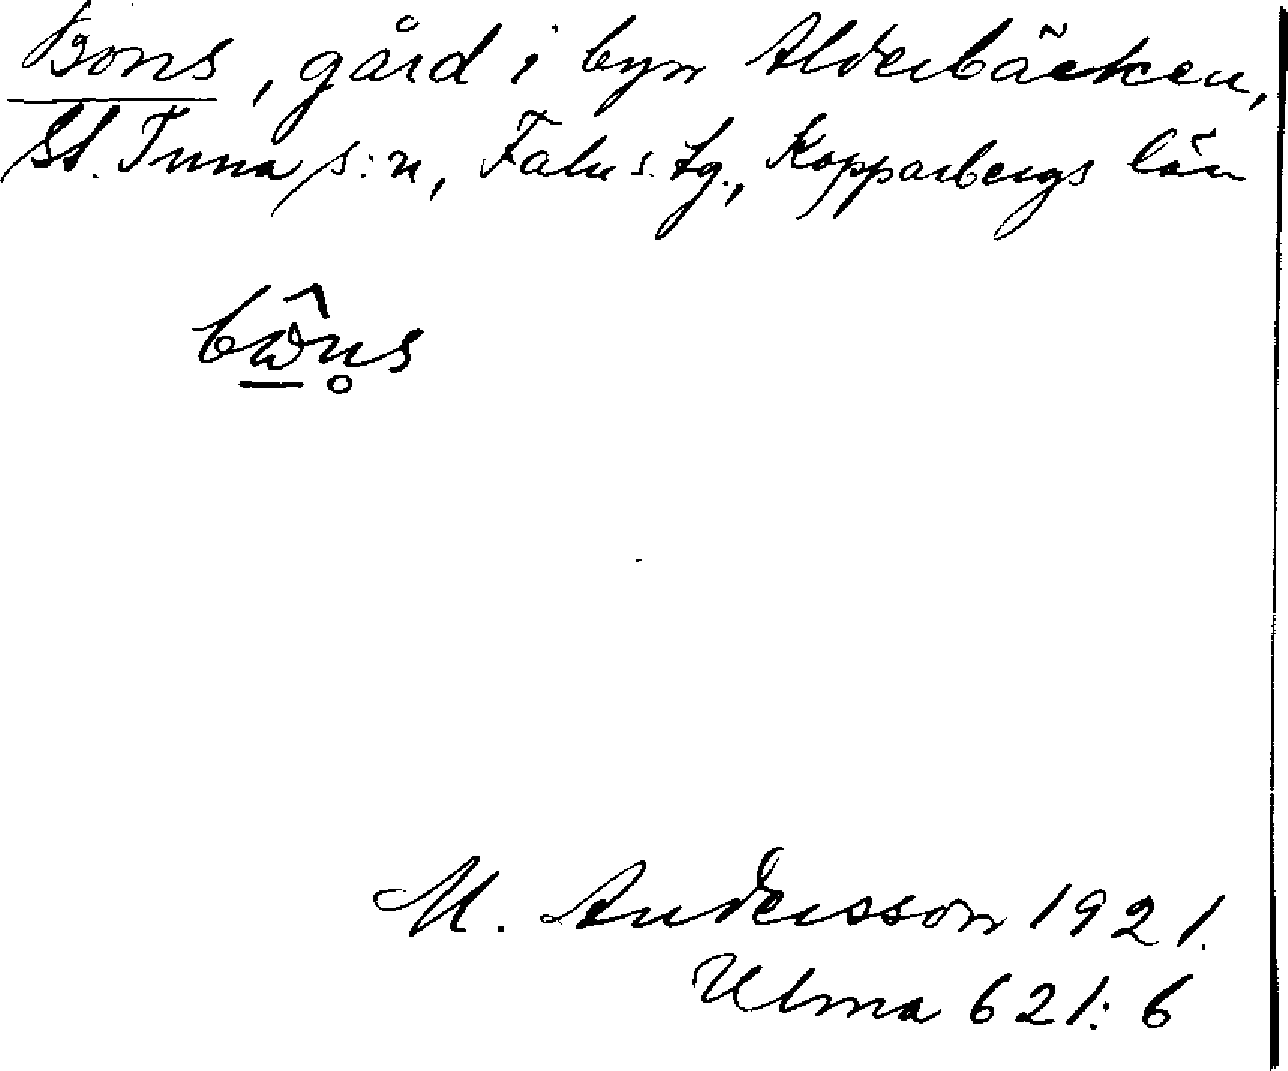 Bons, gård i byn Alderbäcken,
St. Tuna s:n, Falu s. tg., Kopparbergs län
bω̲̂n̥s
M. Andersson 1921.
Ulma 621:6